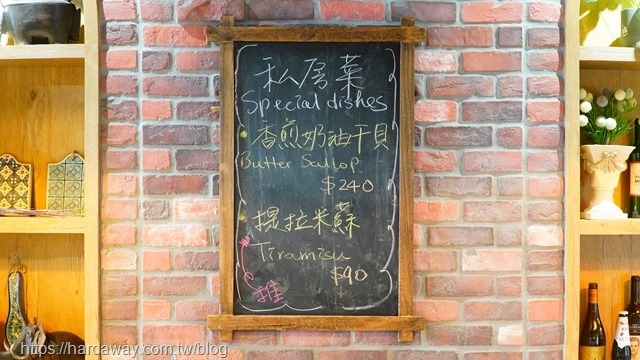 私房菜
Special dishes
香煎奶油干貝
Butter Scallop
$240
提拉米蘇
Tiramisu
$90
推
https://hardaway.com.tw/blog